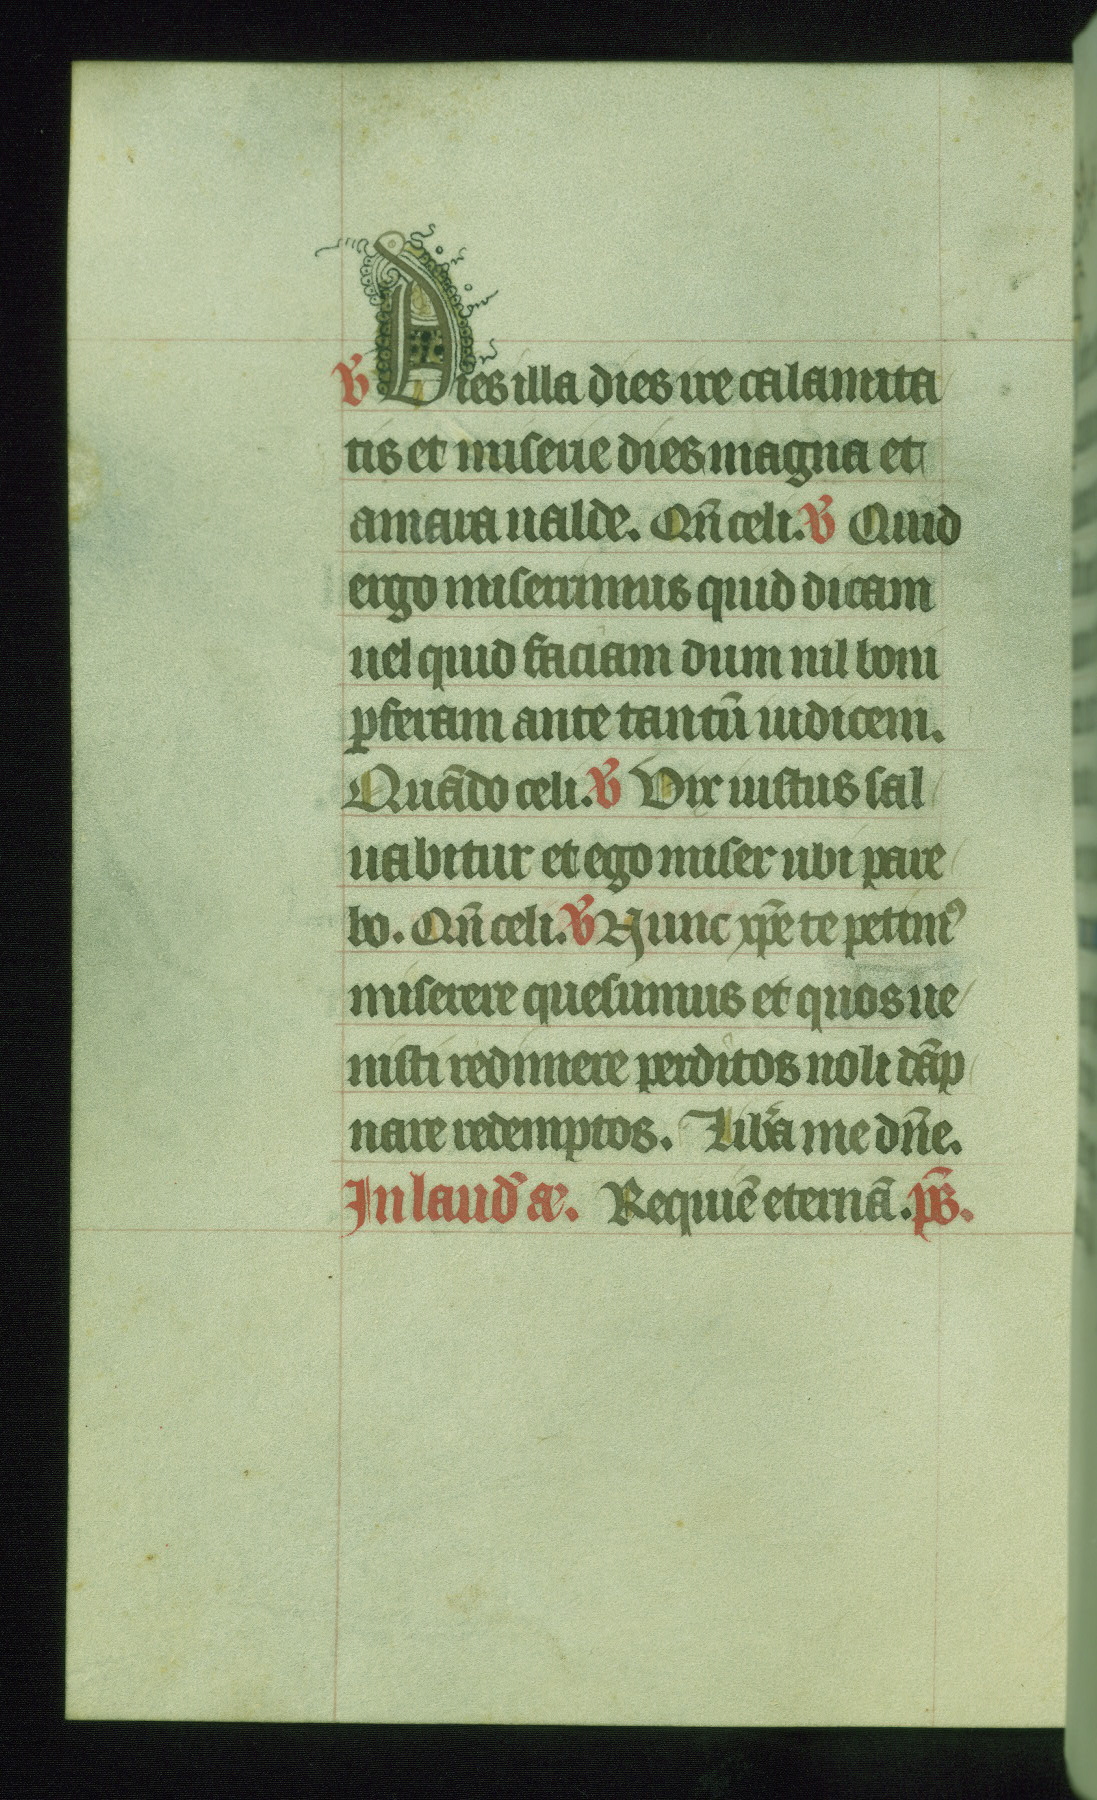 ℣ Dies illa dies ire calamita
tis et miserie dies magna et
amara ualde. Qñ celi. ℣ Quid
ergo miserrimus quid dicam
uel quid faciam dum nil boni
ꝑferam ante tantū iudicem.
Quādo celi. ℣ Vix iustus sal
uabitur et ego miser ubi pare
bo. Qñ celi. ℣ Nunc xp̄e te petimꝰ
miserere quesumus et quos ue
nisti redimere perditos noli dāp
nare redemptos. Libᵃa me dn̄e.
In laud᷒ añ. Requiē eternā. ps̄.